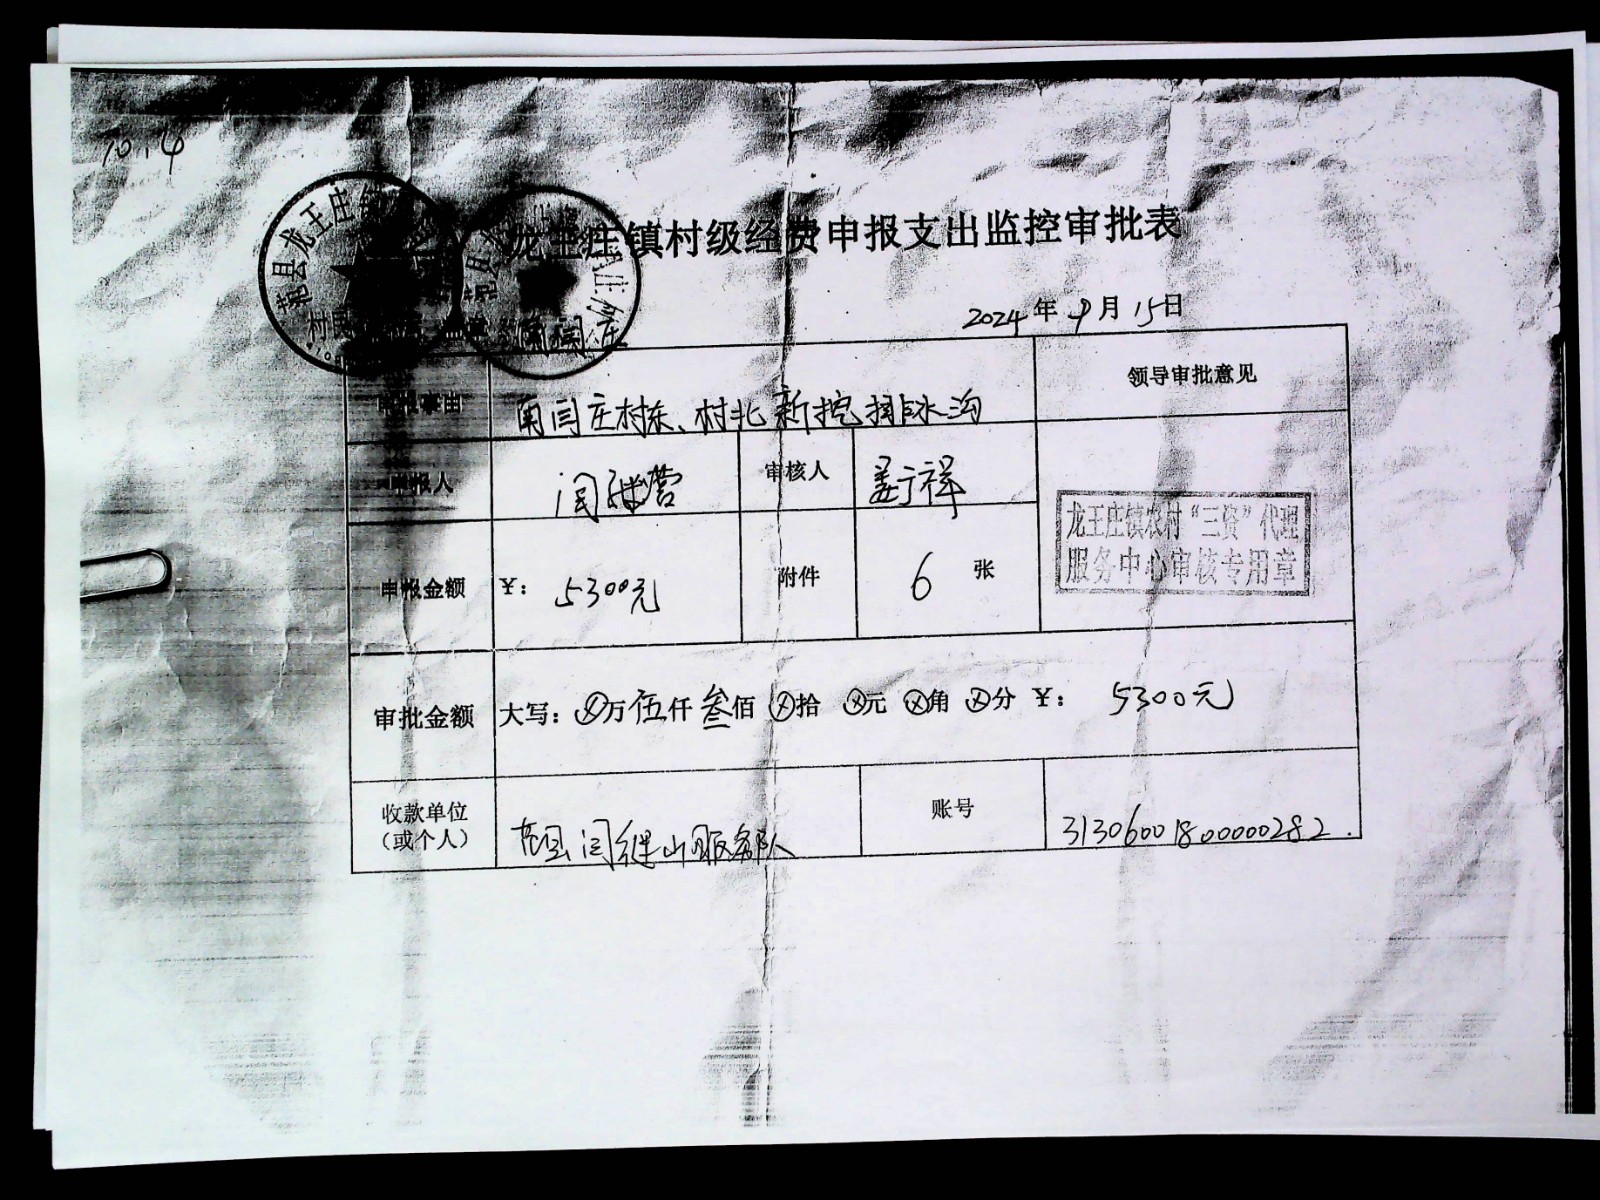 10.4
龙王庄镇村级经费申报支出监控审批表
2024年9月15日
申报事由 南闫庄村东、村北新挖排水沟 领导审批意见
申报人 闫继营 审核人 姜于祥
龙王庄镇农村“三资”代理
服务中心审核专用章
申报金额 ¥: 5300元 附件 6 张
审批金额 大写: ⊗万伍仟叁佰⊗拾⊗元⊗角⊗分 ¥: 5300元
收款单位
(或个人) 范县闫继山服务队 账号 31306001800000282.